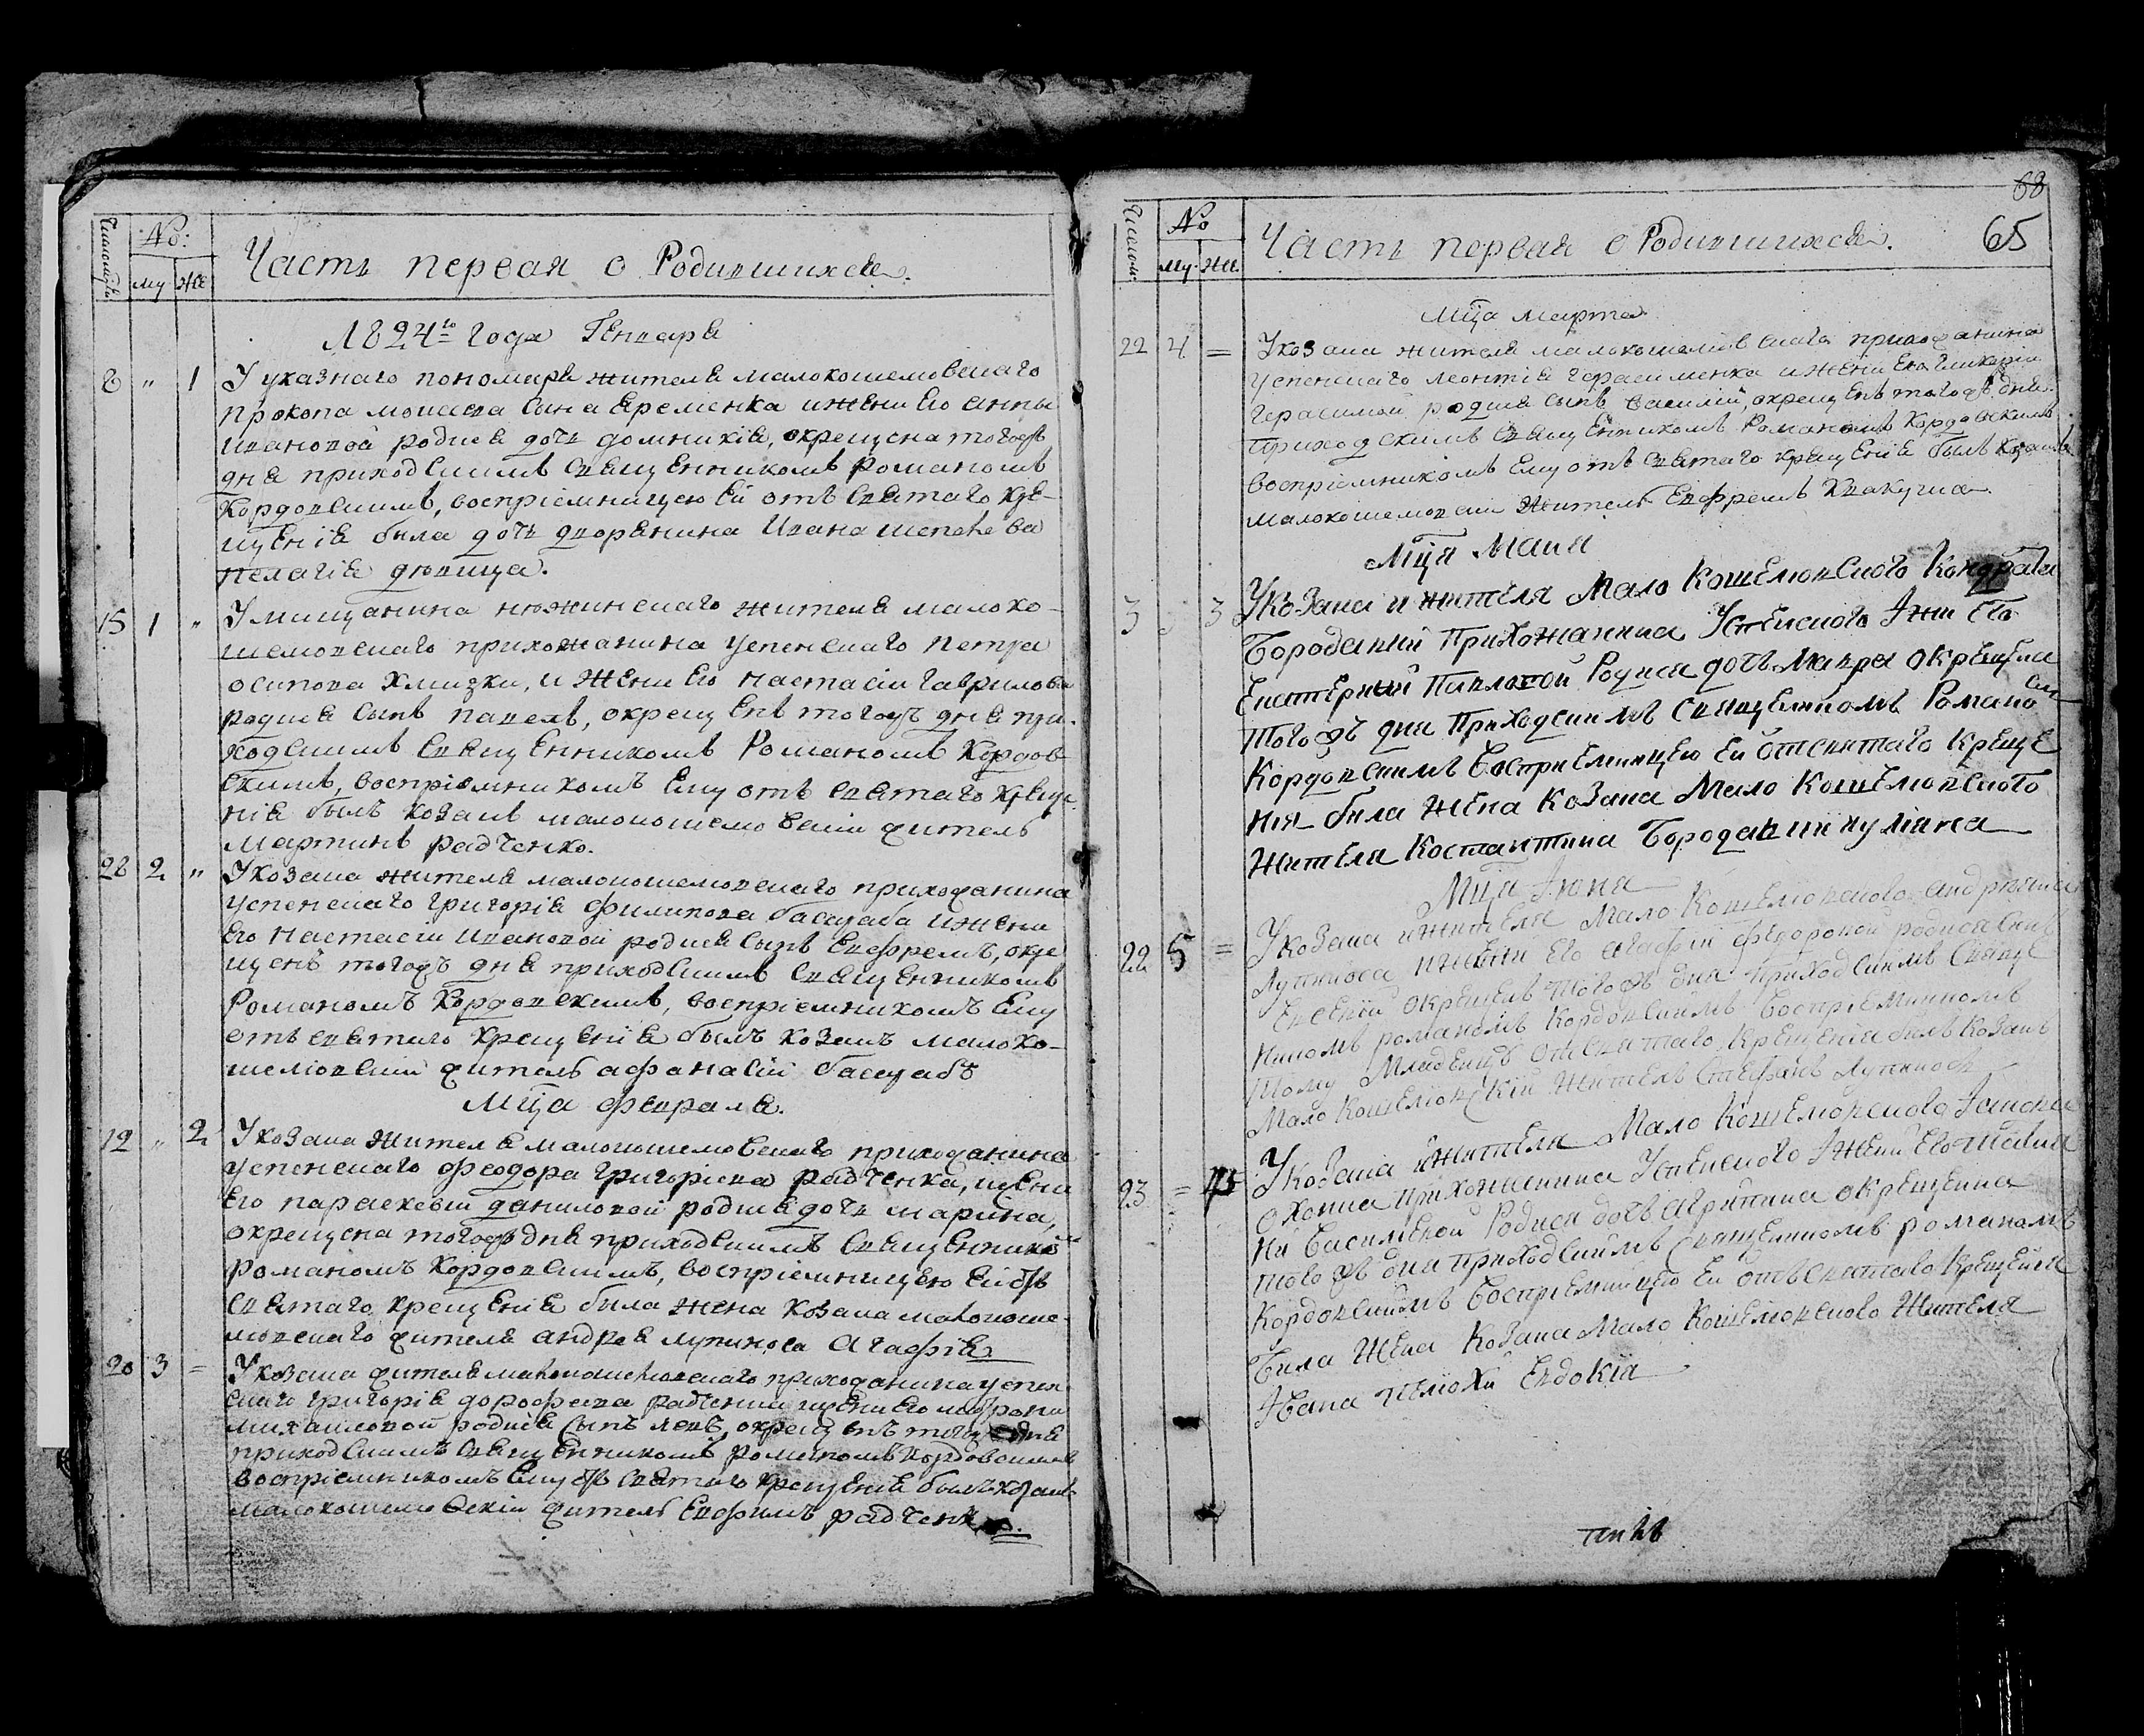 №:
му же
Часть первая о Родившихся.
1824го года Генваря
8 " 1 У указнаго пономаря жителя малокошелювскаго
прокопа моисеева сына яременка и жени его анны
ивановой родися дочь домникія, окрещена тогожъ
дня приходскимъ священникомъ романомъ
Кордовскимъ, воспріемницею ей отъ святаго кре-
щенія была дочь дворянина Ивана шепелева
пелагія дѣвица.
15 1 " У мищанина нѣжинскаго жителя малоко-
шелювскаго прихожанина успенскаго петра
осипова хмызки, и жени его настасіи гаврилово
родися сынъ павелъ, окрещенъ тогожъ дня при-
ходскимъ священникомъ Романомъ Кордов-
скимъ, воспріемникомъ ему отъ святаго креще-
нія былъ козакъ малокошелювскій житель
мартинъ радченко.
28 2 " У козака жителя малокошелювскаго прихожанина
успенскаго григорія филипова басараба и жени
его настасіи ивановой родися сынъ Евфремъ, окре
щенъ тогожъ дня приходскимъ священникомъ
Романомъ Кордовскимъ, воспріемникомъ ему
отъ святаго крещенія былъ козакъ малоко-
шелювскій житель афанасій басарабъ
Мца февраля.
12 " 2 У козака жителя малокошелювскаго прихожанина
успенскаго феодора григоріева радченка, и жени
его параскевіи даниловой родися дочь марина,
окрещена тогожъ дня приходскимъ священнико
романомъ Кордовскимъ, воспріемницею ей отъ
святаго крещенія была жена козака малокоше-
лювскаго жителя андрея лупиноса Агафія
20 3 = У козака жителя малокошелювскаго прихожанина успен
скаго григорія дорофеева радченка и жени его мотрони
михайловой родися сынъ левъ, окрещенъ тогожъ дня
приходскимъ священникомъ романомъ Кордовскимъ
воспріемникомъ ему отъ святаго крещенія былъ козакъ
малокошелювскій житель Евфимъ радченк
68
№
му же
Часть первая о Родившихся. 65
Мца марта
22 4 = У козака жителя малокошелювскаго прихожанина
успенскаго леонтія герасименка и жени его гликеріи
герасимой родися сынъ василій, окрещенъ тогожъ дня
приходскимъ священникомъ Романомъ Кордовскимъ
воспріемникомъ ему отъ святаго крещенія былъ козакъ
малокошелювскій житель Евфремъ Квакуша
Мца Маия
3 3 У козака и жителя Мало Кошелювского Кондрата
Бородавкий Прихожанина Успенского І жени его
Екатерыни Павловой Родися дочъ Мавра окрещена
того жъ дня Приходскимъ священикомъ Романо
Кордовскимъ Восприемницею ей отсвятаго Креще
ния была жена козака Мало Кошелювского
жителя Костантина Бородавки иулияна
Мца Июня
22 5 = У козака и жителя Мало Кошелювского андрияна
Лупиноса и жени его агафій федоровой родися синъ
Евсевій окрещенъ тогожъ дня приходскимъ Свяще
никомъ романомъ Кордовскимъ Воспріемникомъ
тому Младенцу отъ святаго Крещенія билъ козакъ
Мало Кошелювскій жителъ Стефанъ Лупинос
23 = 4 У козака и жителя Мало Кошелювского
прихожанина Успенского І жени его
ни василевой Родися дочъ агрипина окрещенна
того жъ дня Приходскимъ священникомъ романомъ
Кордовскимъ Воспріемницею ей отъ святаго Крещения
Била жена козака Мало Кошелювского жителя
Івана Евдокія